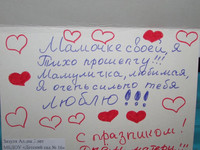 Мамочке своей, я
Тихо прошепчу!!!
Мамуличка, любимая,
Я очень сильно тебя
Люблю!!!
С праздником!
Днём матери!!!